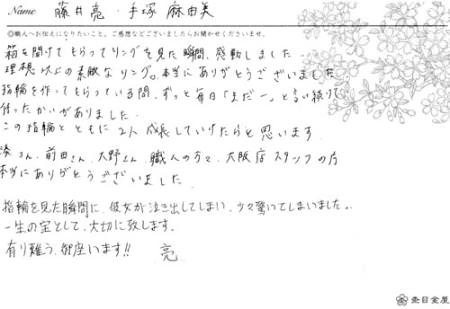 Name 藤井亮・手塚麻由美
◎職人へお伝えになりたいこと、ご感想などございましたらお聞かせくださいませ。
箱を開けてもらってリングを見た瞬間、感動しました。
理想以上の素敵なリング。本当にありがとうございました。
指輪を作ってもらっている間、ずっと毎日「まだー」と言い続けて
待ったかいがありました。
この指輪とともに2人成長していけたらと思います。
湊さん、前田さん、大野さん、職人の方々、大阪店スタッフの方
本当にありがとうございました。
指輪を見た瞬間に、彼女が泣き出してしまい、少々驚いてしまいました。
一生の宝として、大切に致します。
有り難う、御座います!! 亮
杢目金屋